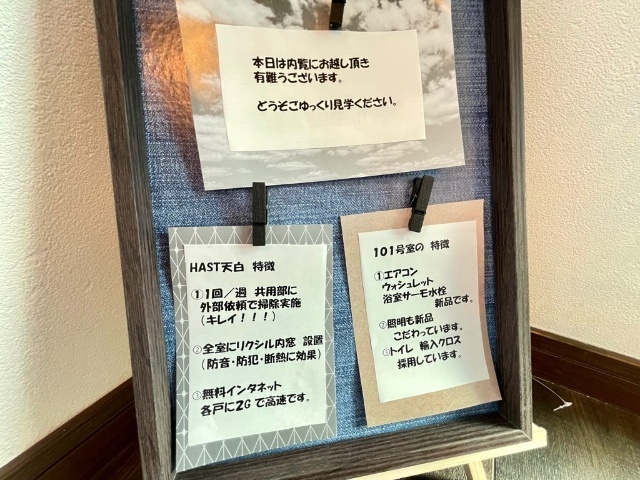 本日は内覧にお越し頂き
有難うございます。
どうぞごゆっくり見学ください。
HAST天白 特徴
①1回/週 共用部に
外部依頼で掃除実施
(キレイ!!!)
②全室にリクシル内窓 設置
(防音・防犯・断熱に効果)
③無料インタネット
各戸に2Gで高速です。
101号室の 特徴
①エアコン
ウォシュレット
浴室サーモ水栓
新品です。
②照明も新品
こだわっています。
③トイレ 輸入クロス
採用しています。